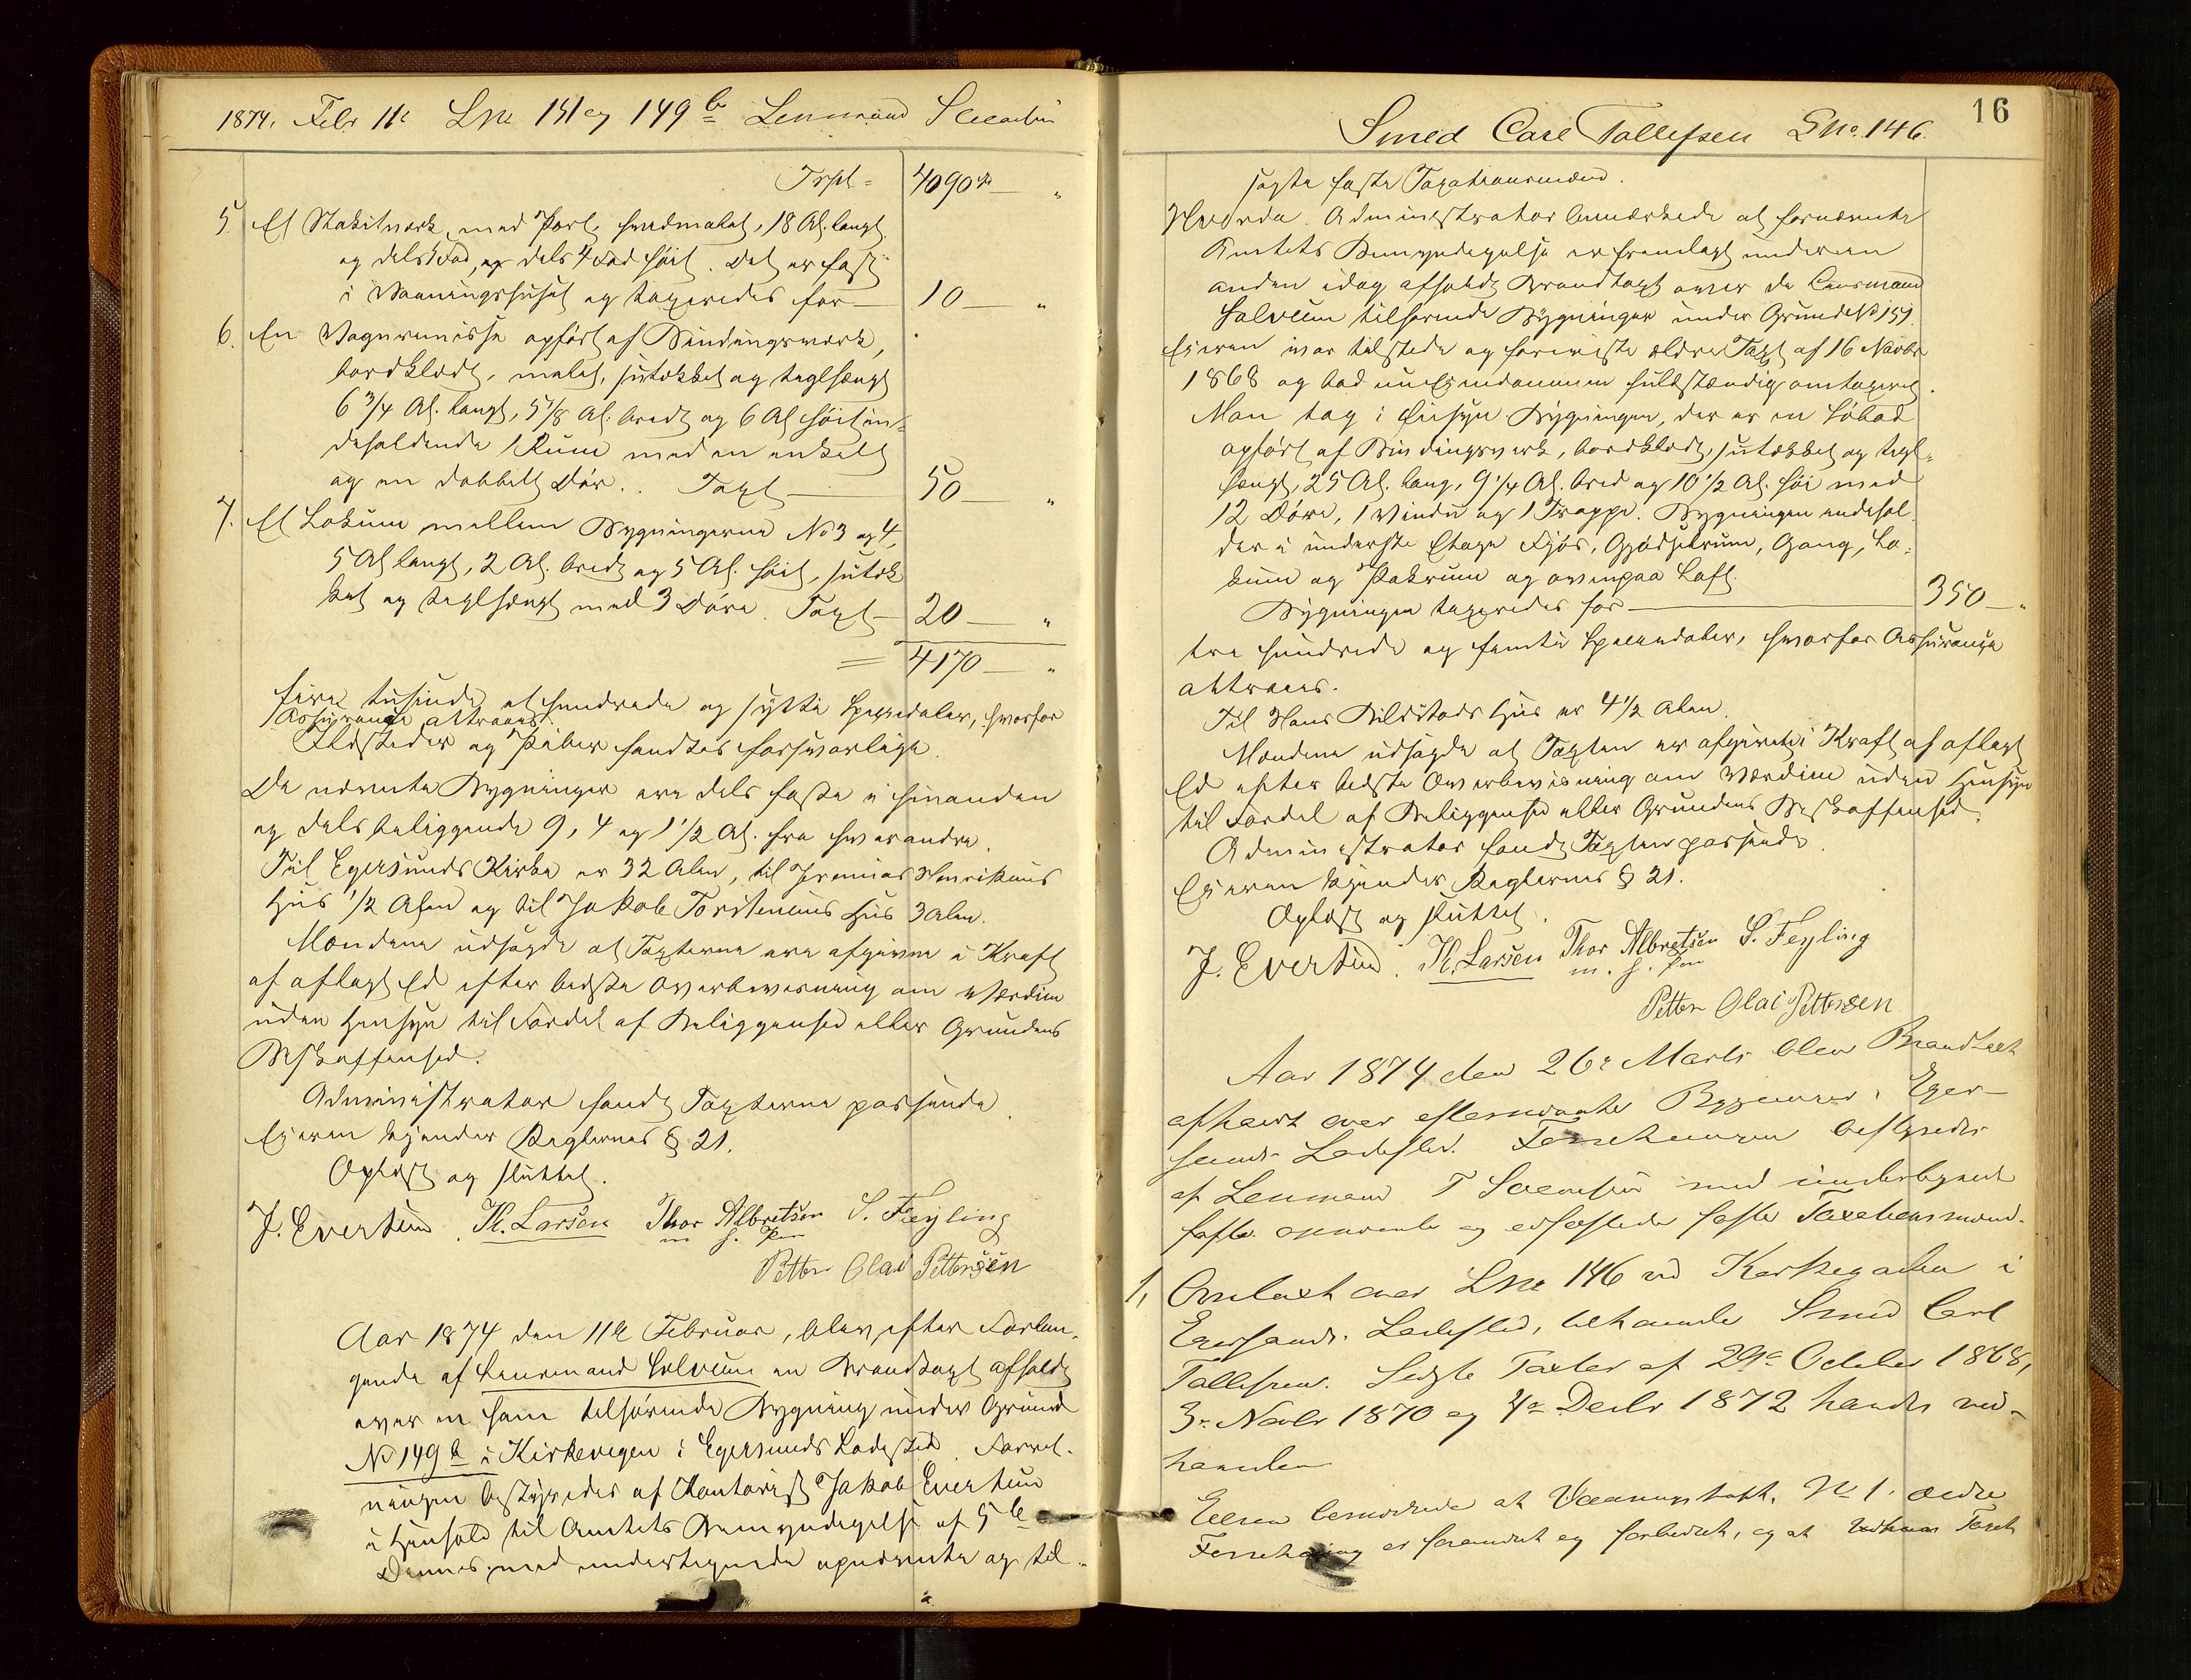 1874. Febr 11te LNo 151 og 149b Lensmand Salvesen
Trspt = 4090 Sp — "
5. Et Stakitværk med Port, hvidmalet, 18 Al. langt
og dels Fod, og dels 4 Fod høit. Det er fast
i Vaaningshuset og taxeredes for — 10 — "
6. En Vognremisse opført af Bindingsværk,
bordklædt, malet, sutækket og teglhængt
6 3/4 Al. langt, 5 1/8 Al. bredt og 6 Al høit in-
deholdende 1 Rum med en enkelt
og en dobbelt Dør. Taxt — 50 — "
7. Et Lokum mellem Bygningerne No 3 og 4,
5 Al langt, 2 Al. bredt og 5 Al. høit, sutæk
ket og teglhængt med 3 Døre. Taxt — 20 — "
= 4170 — "
fire tusinde et hundrede og sytti Speciedaler, hvorfor
Assurance attraaes.
Ildsteder og Piber fandtes forsvarlige.
De nævnte Bygninger ere dels faste i hinanden
og dels beliggende 9, 4 og 1 1/2 Al. fra hverandre.
Til Egersunds Kirke er 32 Alen, til Jremias Henriksens
Hus 1/2 Alen og til Jakob Torstensens Hus 3 Alen.
Mændene udsagde at Taxterne ere afgivne i Kraft
af aflagt Ed efter bedste Overbevisning om Værdien
uden Hensyn til Fordel af Beliggenhed eller Grundens
Beskaffenhed.
Administrator fandt Taxterne passende.
Eieren kjender Reglernes § 21.
Oplæst og sluttet.
J. Evertsen. Th. Larsen Thor Albretsen S. Feyling
m. f. Pen
Petter Olai Pettersen
Aar 1874 den 11te Februar, blev efter Forlan-
gende af Lensmand Salvesen en Brandtaxt afholdt
over en ham tilhørende Bygning under Grund
No 149 b i Kirkevegen i Egersunds Ladested. Forret-
ningen bestyredes af Kontorist Jakob Evertsen
i Henhold til Amtets Bemyndigelse af 5te
Dennes, med undertegnede opnævnte og til-
Smed Carl Tollefsen LNo. 146. 16
sagte faste Taxationsmænd.
Hvorda. Administrator bemærkede at fornævnte
Amtets Bemyndigelse er fremlagt under en
anden idag afholdt Brandtaxt over de Lensmand
Salvesen tilhørende Bygninger under Grund No 151.
Eieren var tilstede og foreviste ældre Taxt af 16 Novbr
1868 og bad nu Eiendommen fuldstændig omtaxeret.
Man tog i Øiesyn Bygningen, der er en Søbod
opført af Bindingsværk, bordklædt, sutækket og tegl-
hængt, 25 Al. lang, 9 1/4 Al. bred og 10 1/2 Al. høi med
12 Døre, 1 Vindu og 1 Trappe. Bygningen indehol
der i underste Etage Fjøs, Gjødselrum, Gang, Lo-
kum og Pakrum og ovenpaa Loft.
Bygningen taxeredes for — 350 — "
tre hundrede og femti Speciedaler, hvorfor Assurance
attraaes.
Til Hans Bilstads Hus er 4 1/2 Alen.
Mændene udsagde at Taxten er afgivet i Kraft af aflagt
Ed efter bedste Overbevisning om Værdien uden Hensyn
til Fordel af Beliggenhed eller Grundens Beskaffenhed.
Administrator fandt Taxten passende.
Eieren kjender Reglernes § 21.
Oplæst og sluttet.
J. Evertsen. Th. Larsen Thor Albretsen S. Feyling
m. f. Pen
Petter Olai Pettersen
Aar 1874 den 26e Marts blev Brandtaxt
afholdt over efternævnte Bygninger i Eger-
sunds Ladested. Forretningen bestyredes
af Lensmand T Salvesen med underskrevne
faste opnævnte og edfæstede faste Taxationsmænd.
1, Omtaxt over LNo 146 ved Kirkegaden i
Egersunds Ladested, tilhørende Smed Carl
Tollefsen. Sidste Taxter af 29de October 1868,
3e Novbr 1870 og 4de Decbr 1872 havdes ved
haanden
Eieren bemærkede at Vaaningshuset, No 1. ældre
Forretning er forandret og forbedret, og at Taxt